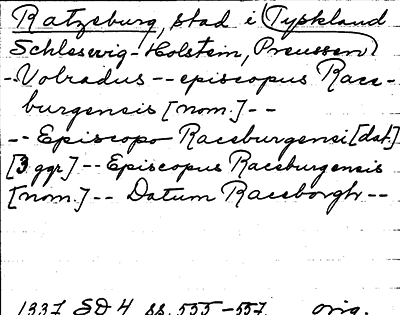 Ratzeburg, stad i (Tyskland
Schleswig-Holstein, Preussen)
-Volradus -- episcopus Race-
burgensis [nom.] --
-- Episcopo Raceburgensi [dat.]
[3 ggr.] -- Episcopus Raceburgensis
[nom.] -- Datum Raceborgh --
1337 SD 4 ss. 555-557. orig.